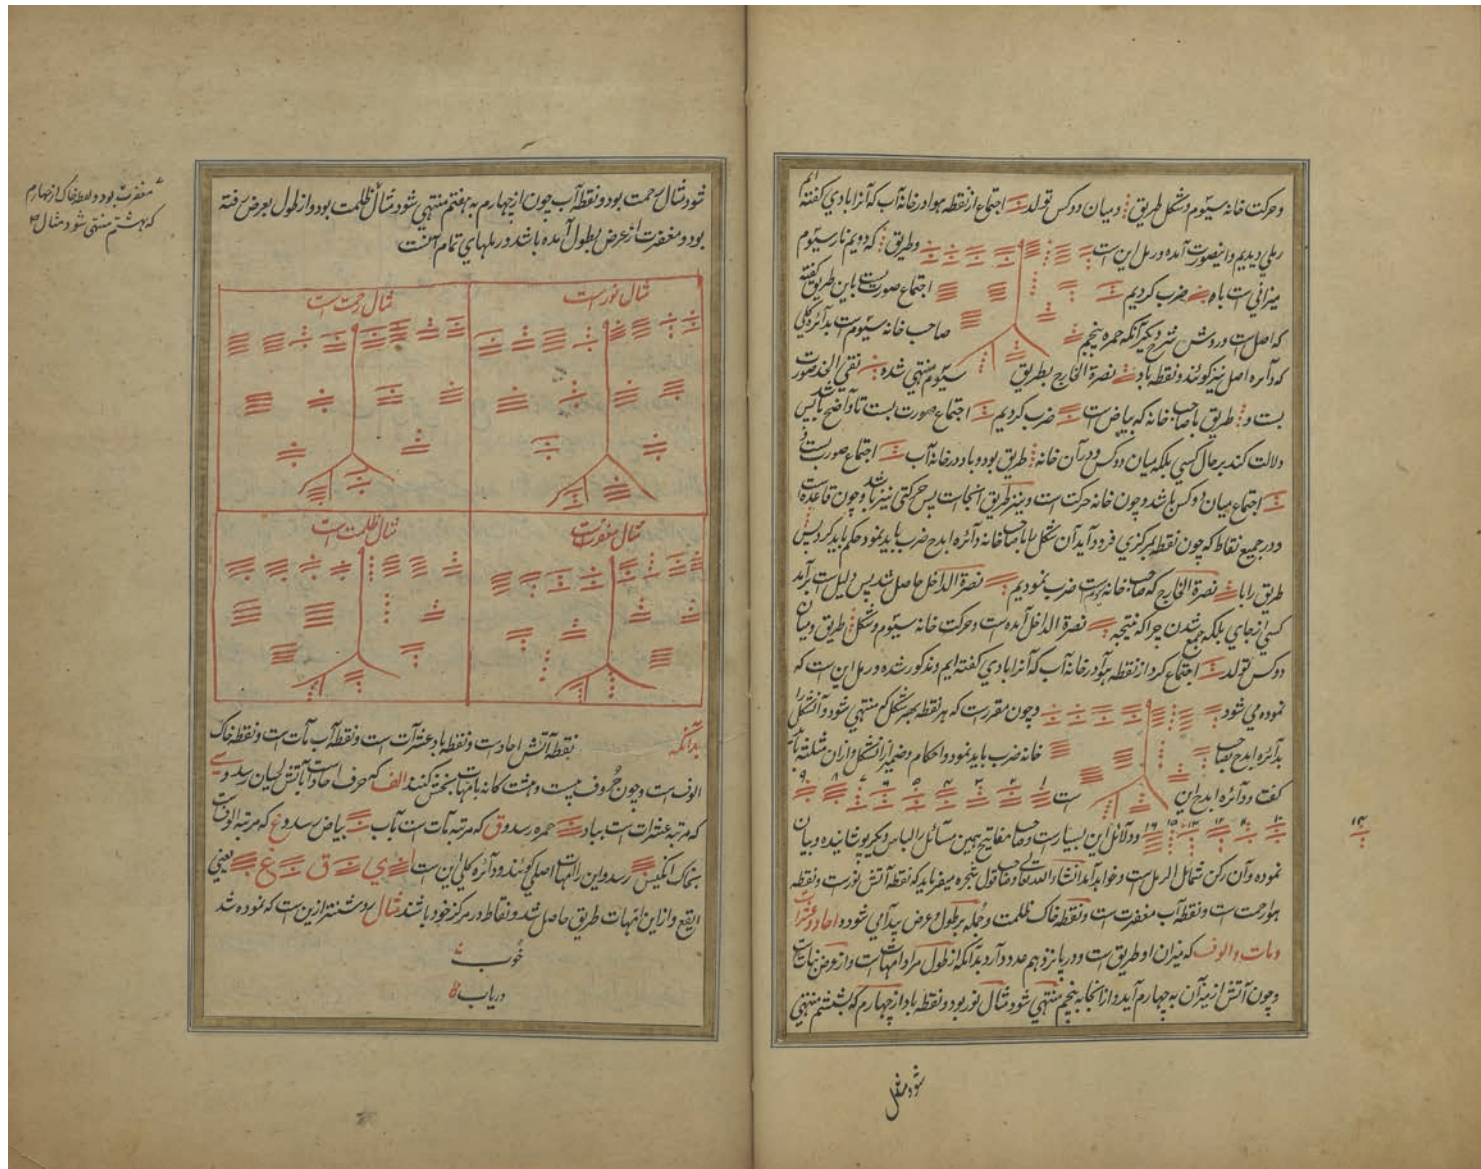 و حرکت خانه سیّوم و شکل طریق و میان دو کس تولد اجتماع از نقطه هوا در خانه آب که آنرا بادی گفته ایم
رملی دیدیم و اینصورت آمده و رمل این است و طریق که دویم نار سیّوم
میزانی است باه ضرب کردیم اجتماع صورت بست باین طریق گفته
که اصل است و روش شرح دیگر آنکه حمره پنجم صاحب خانه سیّوم است بدائره کلی
که دائره اصل نیز گویند و نقطه باد نصرة الخارج بطریق سیّوم منتهی شده نقی الخد صورت
بست و طریق با صاحب خانه که بیاض است ضرب کردیم اجتماع صورت بست تا واضح باشد پس
دلالت کند بر حال کسی بلکه میان دو کس و در آن خانه طریق بود و باد در خانه آب اجتماع صورت بست و
اجتماع میان دو کس باشد و چون خانه حرکت است و نیز طریق انجاست پس حرکتی نیز باشد و چون قاعده است
و در جمیع نقاط که چون نقطه بمرکزی فرود آید آن شکل را با صاحب خانه دائره ابدح ضرب باید نمود حکم باید کرد پس
طریق را با نصرة الخارج که صاحب خانه است ضرب نمودیم نصرة الداخل حاصل شد پس دلیل است برآمد
کسی از جای بلکه جمع شدن چرا که نتیجه نصرة الداخل آمده است و حرکت خانه سیّوم و شکل طریق و میان
دو کس تولد اجتماع کرد از نقطه هوا در خانه آب که آنرا بادی گفته ایم و مذکور شده و رمل این است که
نموده می شود و چون مقرر است که هر نقطه بهر شکل که منتهی شود آنشکل را
بدائره ابدح بصاحب خانه ضرب باید نمود و احکام و ضمیر از آنشکل و ازان مثلثه باید
گفت و دائره ابدح این است ۱ ۲ ۳ ۴ ۵ ۶ ۷ ۸ ۹
۱۰ ۱۱ ۱۲ ۱۳ ۱۵ ۱۶ و دلائل این بسیار است و صاحب مفاتیح همین مسائل را لباس دیگر پوشانیده و بیان
۱۴
نموده و آن رکن شمائل الرمل است و خواهد آمد انشاء الله تعالی و صاحب قول شجره میفرماید که نقطه آتش نور است و نقطه
هوا رحمت است و نقطه آب مغفرت است و نقطه خاک ظلمت و جمله بر طول و عرض پیدا می شود و احاد و عشرات
و مات و الوف که میزان او طریق است و در پانزدهم عدد دارد بدانکه از طول مراد امهات است و از عرض بنات است
و چون آتش از میزان به چهارم آید و از انجا به پنجم منتهی شود مثال نور بود و نقطه باد از چهارم که بششم منتهی
شود مثال
شود مثال رحمت بود و نقطه آب چون از چهارم به هفتم منتهی شود مثال ظلمت بود و از طول بعرض رفته
بود و مغفرت از عرض بطول آمده باشد و رملهای تمام آنست
مغفرت بود و نقطه خاک از چهارم
که بهشتم منتهی شود مثال
مثال نور است
مثال رحمت است
مثال مغفرت است
مثال ظلمت است
بدانکه نقطه آتش احاد است و نقطه باد عشرات است و نقطه آب مآت است و نقطه خاک
الوف است و چون حروف بیست و هشت گانه بامهات بخش کنند الف که حرف احاد است بآتش لحیان رسد و ی
که مرتبه عشرات است بباد حمره رسد و ق که مرتبه مآت است بآب بیاض رسد و غ که مرتبه الوف است
بخاک انکیس رسد و این را امهات اصلی گویند و دائره کلی این است ا ی ق غ یعنی
ایقغ و از این امهات طریق حاصل شد و نقاط در مرکز خود باشند مثال روشنتر ازین است که نموده شد
خوب
دریاب